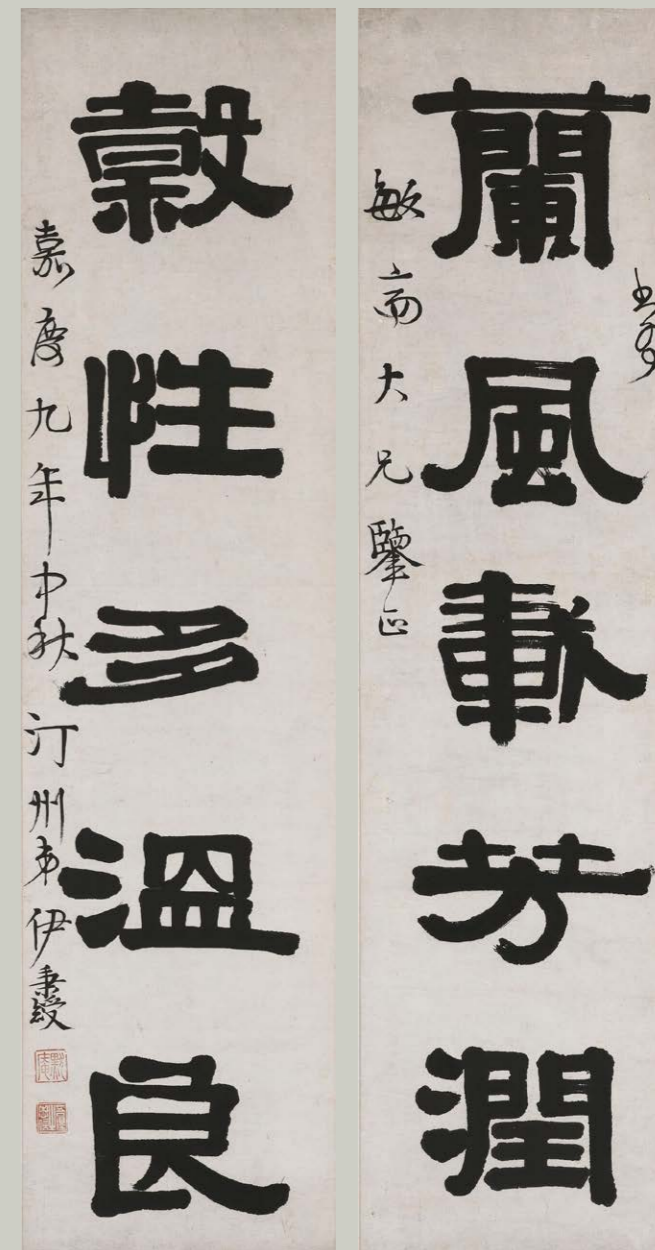 蘭風載芳潤
敏齋大兄鑒正
穀性多溫良
嘉慶九年中秋汀州弟伊秉綬